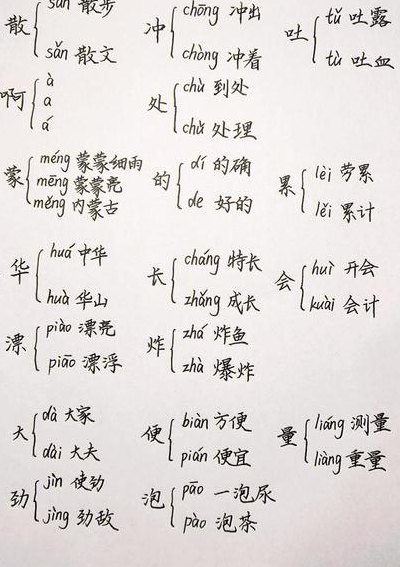 散 sàn 散步
sǎn 散文
冲 chōng 冲出
chòng 冲着
吐 tǔ 吐露
tù 吐血
啊 à
a
á
处 chù 到处
chǔ 处理
蒙 méng 蒙蒙细雨
mēng 蒙蒙亮
měng 内蒙古
的 dí 的确
de 好的
累 lèi 劳累
lěi 累计
华 huá 中华
huà 华山
长 cháng 特长
zhǎng 成长
会 huì 开会
kuài 会计
漂 piào 漂亮
piāo 漂浮
炸 zhá 炸鱼
zhà 爆炸
大 dà 大家
dài 大夫
便 biàn 方便
pián 便宜
量 liáng 测量
liàng 重量
劲 jìn 使劲
jìng 劲敌
泡 pāo 一泡尿
pào 泡茶